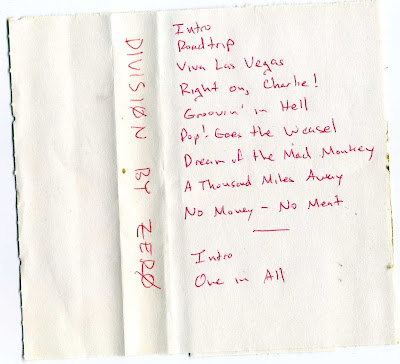 DIVISION BY ZERØ
Intro
Roadtrip
Viva Las Vegas
Right on, Charlie!
Groovin' in Hell
Pop! Goes the Weasel
Dream of the Mad Monkey
A Thousand Miles Away
No Money - No Meat
Intro
One in All